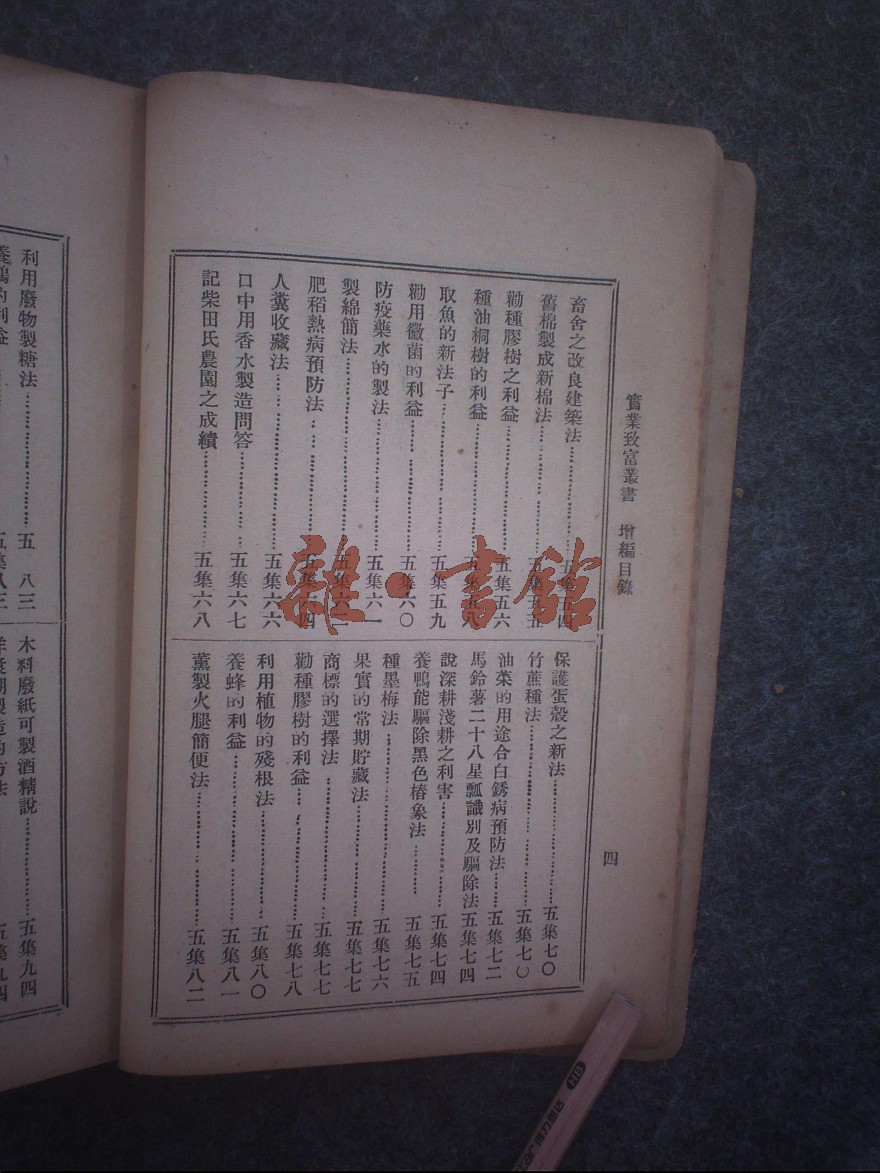 實業致富叢書 增編目錄
四
畜舍之改良建築法……五集五四
舊棉製成新棉法……五集五五
勸種膠樹之利益……五集五六
種油桐樹的利益……五集五八
取魚的新法子……五集五九
勸用黴菌的利益……五集六〇
防疫藥水的製法……五集六一
製綿簡法……五集六二
肥稻熱病預防法……五集六四
人糞收藏法……五集六六
口中用香水製造問答……五集六七
記柴田氏農園之成績……五集六八
保護蛋殼之新法……五集七〇
竹蔗種法……五集七〇
油菜的用途合白銹病預防法……五集七二
馬鈴薯二十八星瓢識別及驅除法……五集七四
說深耕淺耕之利害……五集七四
養鴨能驅除黑色椿象法……五集七五
種墨梅法……五集七六
果實的常期貯藏法……五集七七
商標的選擇法……五集七七
勸種膠樹的利益……五集七八
利用植物的殘根法……五集八〇
養蜂的利益……五集八一
薰製火腿簡便法……五集八二
利用廢物製糖法……五 八三
的利益……五集八三
木料廢紙可製酒精說……五集九四
製造的方法……五集九四
雜·書館
HB
得力